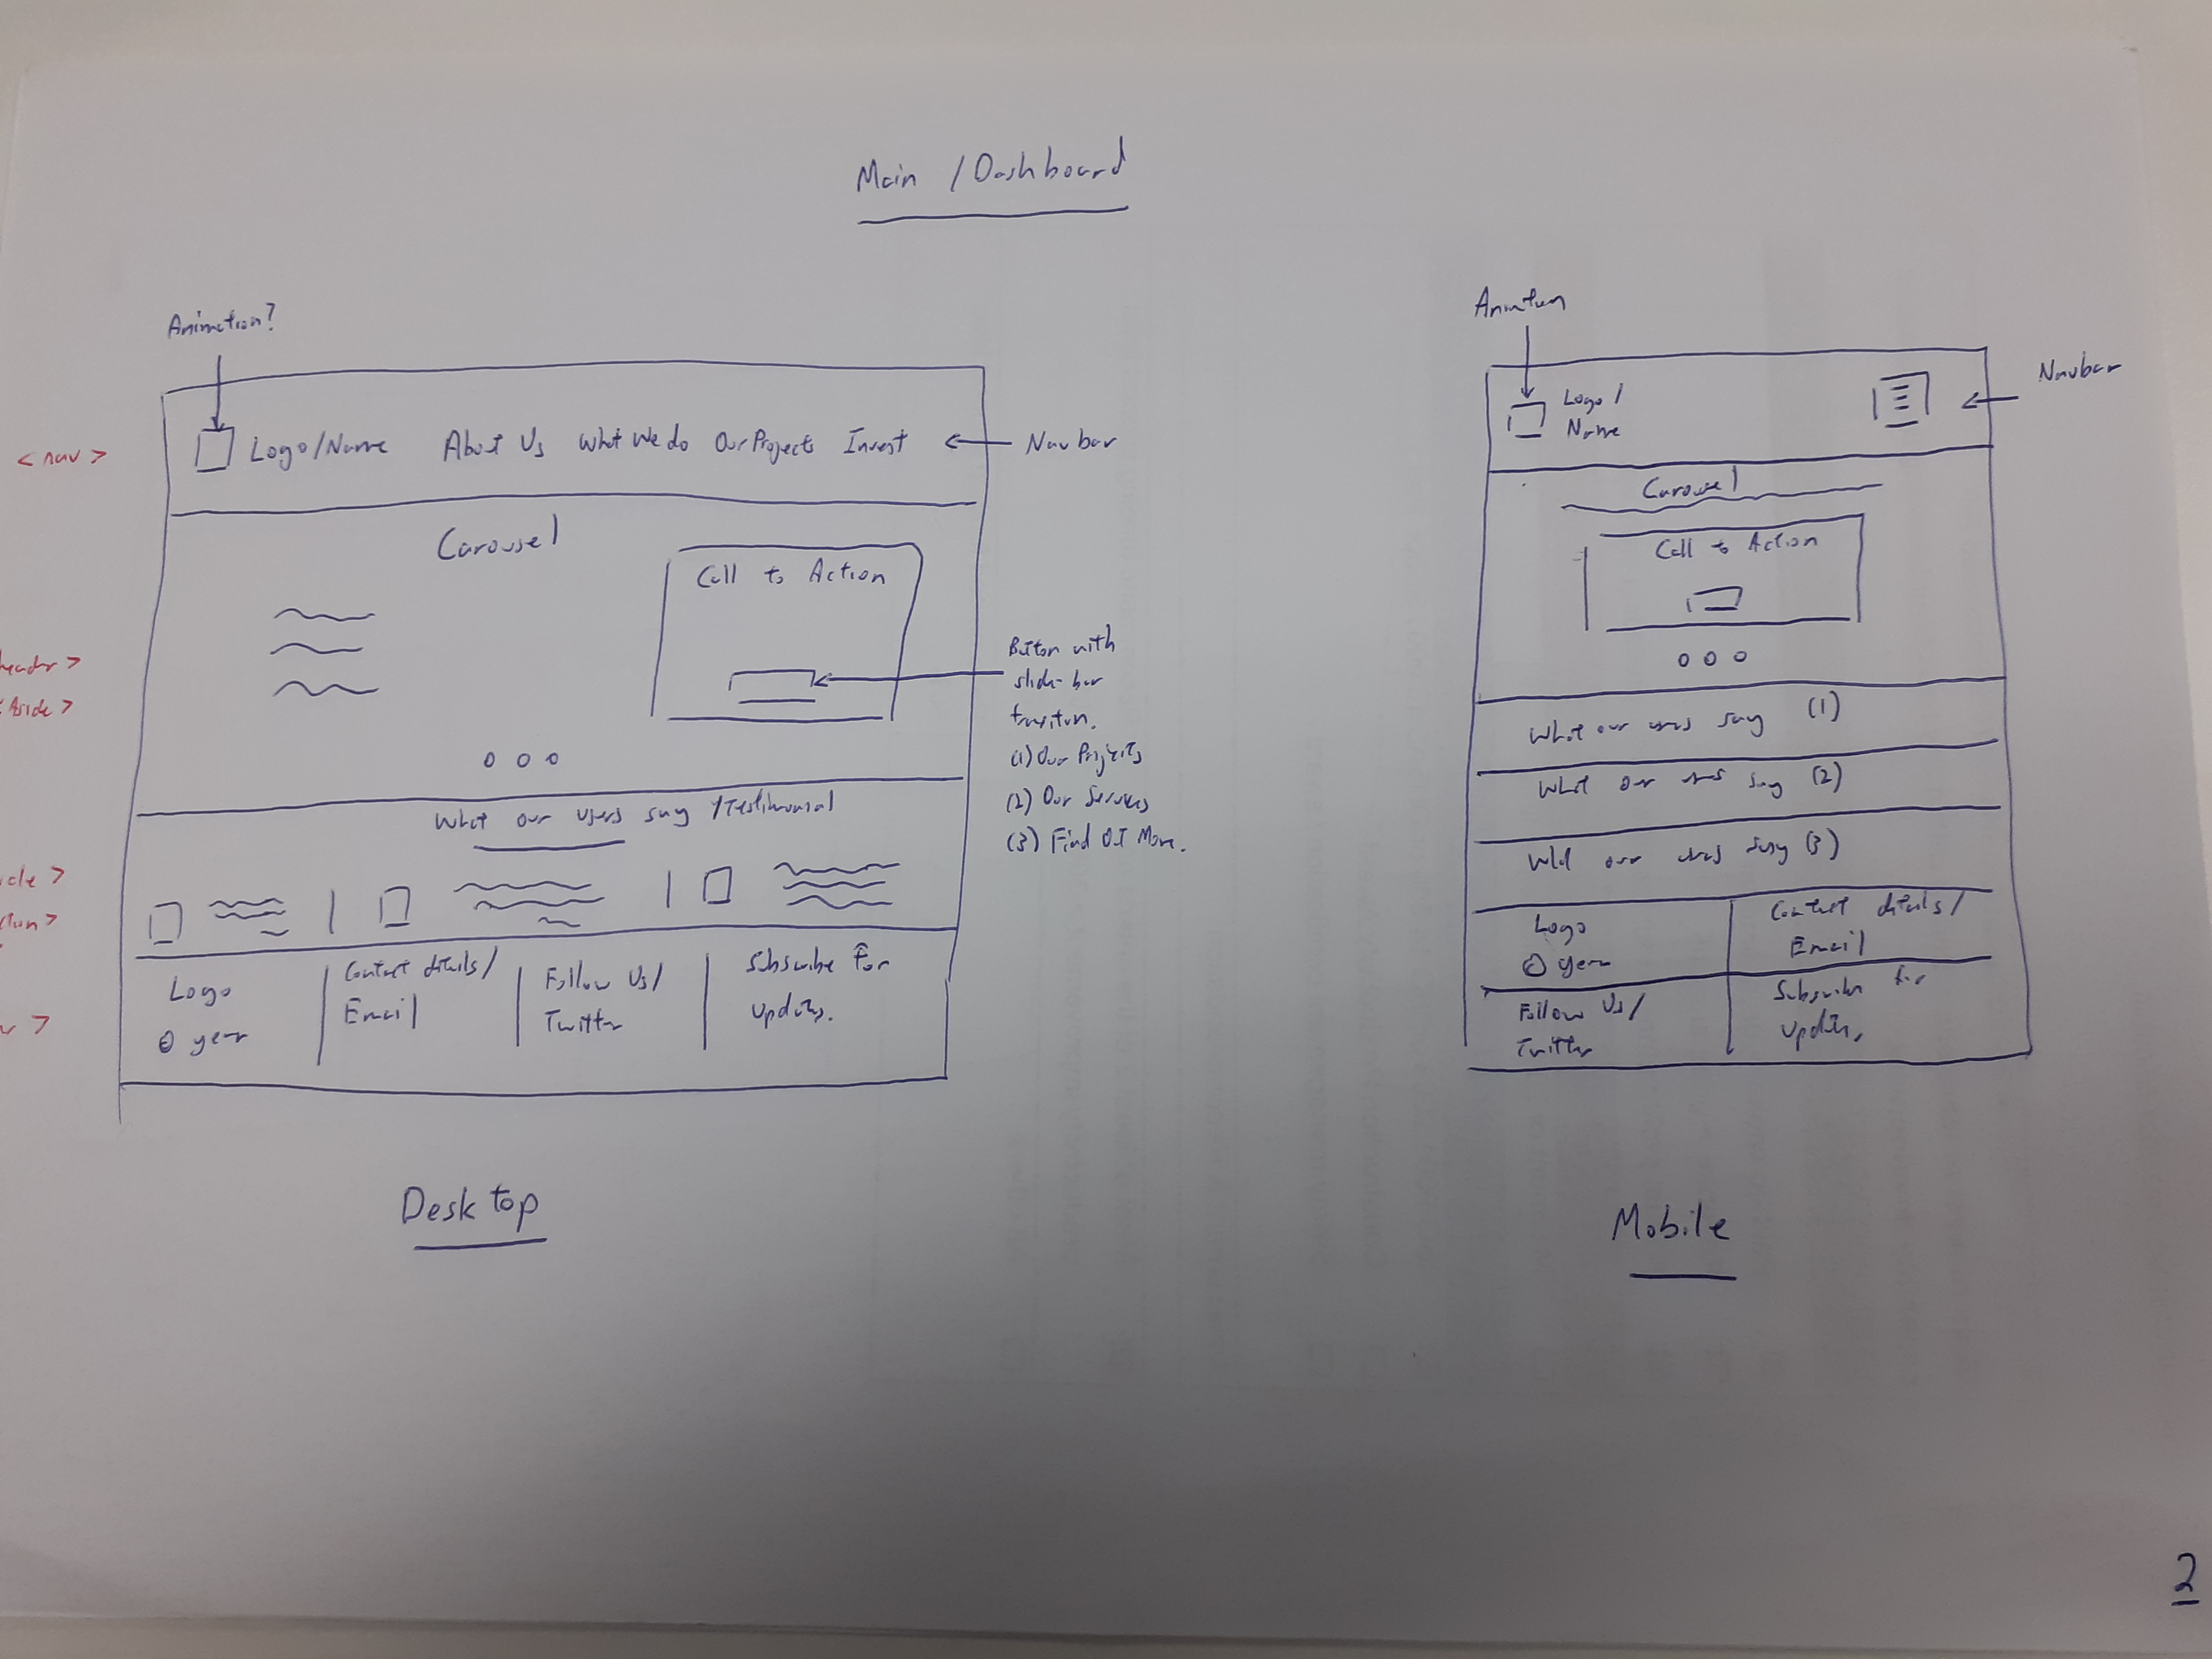 Main / Dashboard
Animation?
<nav>
Logo/Name About Us What We do Our Projects Invest
Navbar
Carousel
Call to Action
header>
Aside>
Button with
slide-bar
(1) Our Projects
(2) Our Services
(3) Find Out More.
What our users say /Testimonial
cle >
tion>
Logo
© year
Contact details/
Email
Follow Us/
Twitter
Subscribe For
updates.
r >
Desktop
Animation
Logo /
Name
Navbar
Carousel
Call to Action
What our users say (1)
What our users say (2)
What our users say (3)
Logo
© year
Contact details/
Email
Follow Us/
Twitter
Subscribe for
updates,
Mobile
2